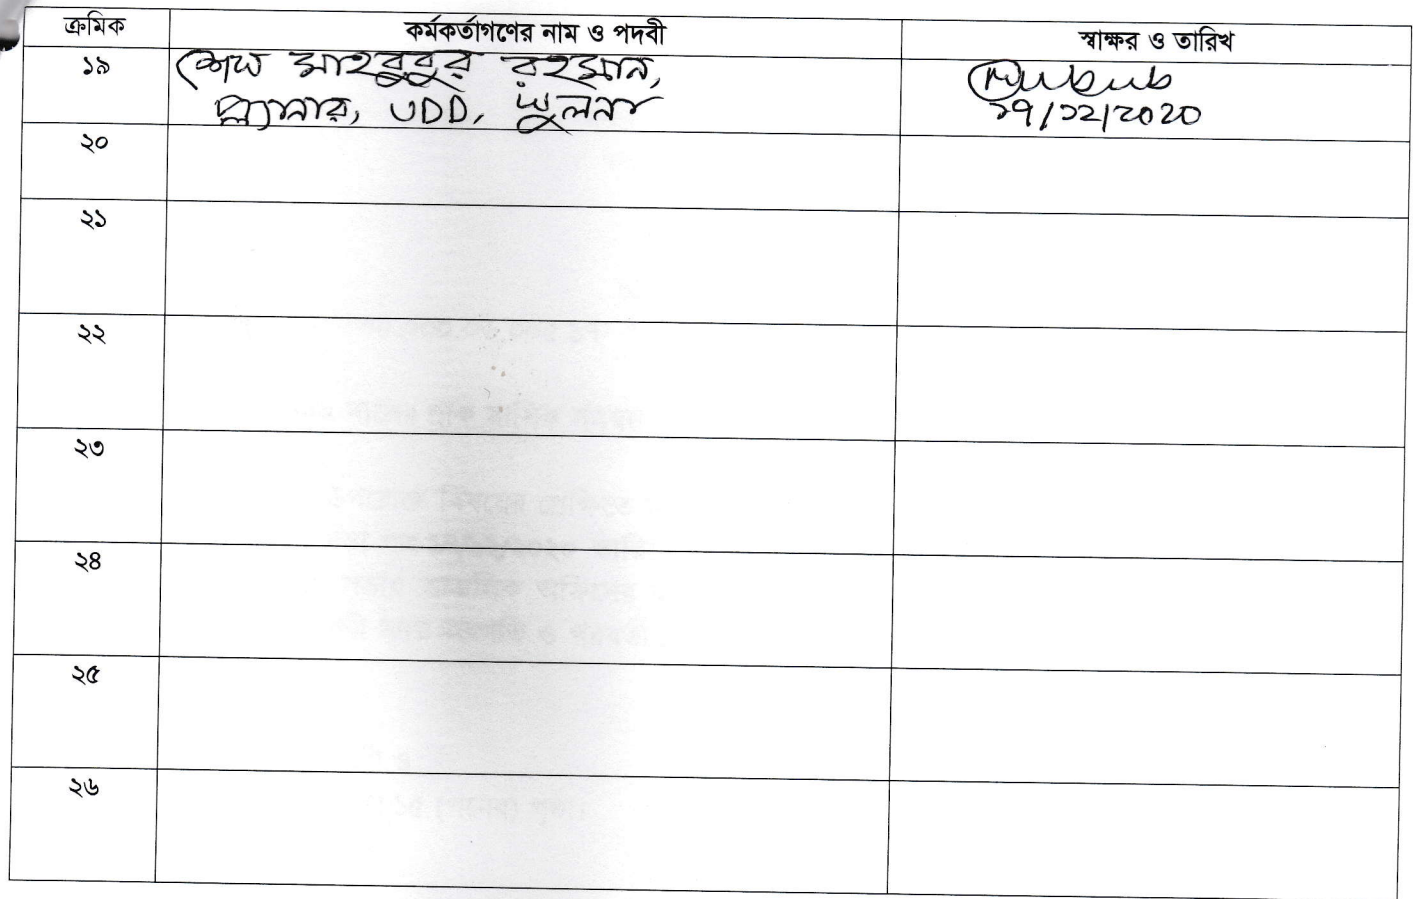 ক্রমিক কর্মকর্তাগণের নাম ও পদবী স্বাক্ষর ও তারিখ
১৯ শেখ মাহবুবুর রহমান,
প্ল্যানার, UDD, খুলনা ২৭/১২/২০২০
২০
২১
২২
২৩
২৪
২৫
২৬